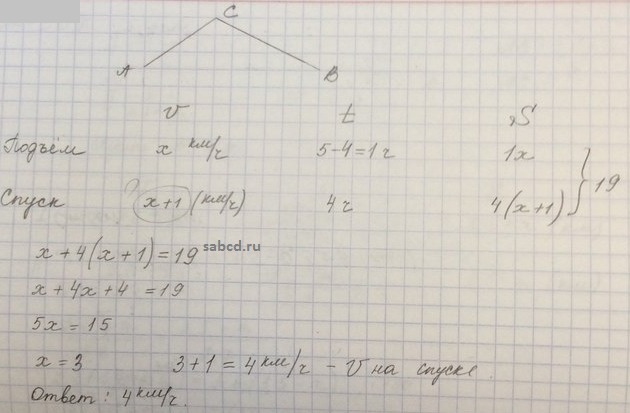 C
A
B
v t S
Подъём x км/ч 5-4=1 ч 1x
Спуск ? x+1 (км/ч) 4 ч 4(x+1) } 19
x+4(x+1)=19
sabcd.ru
x+4x+4 =19
5x=15
x=3 3+1=4 км/ч - v на спуске.
Ответ: 4 км/ч.